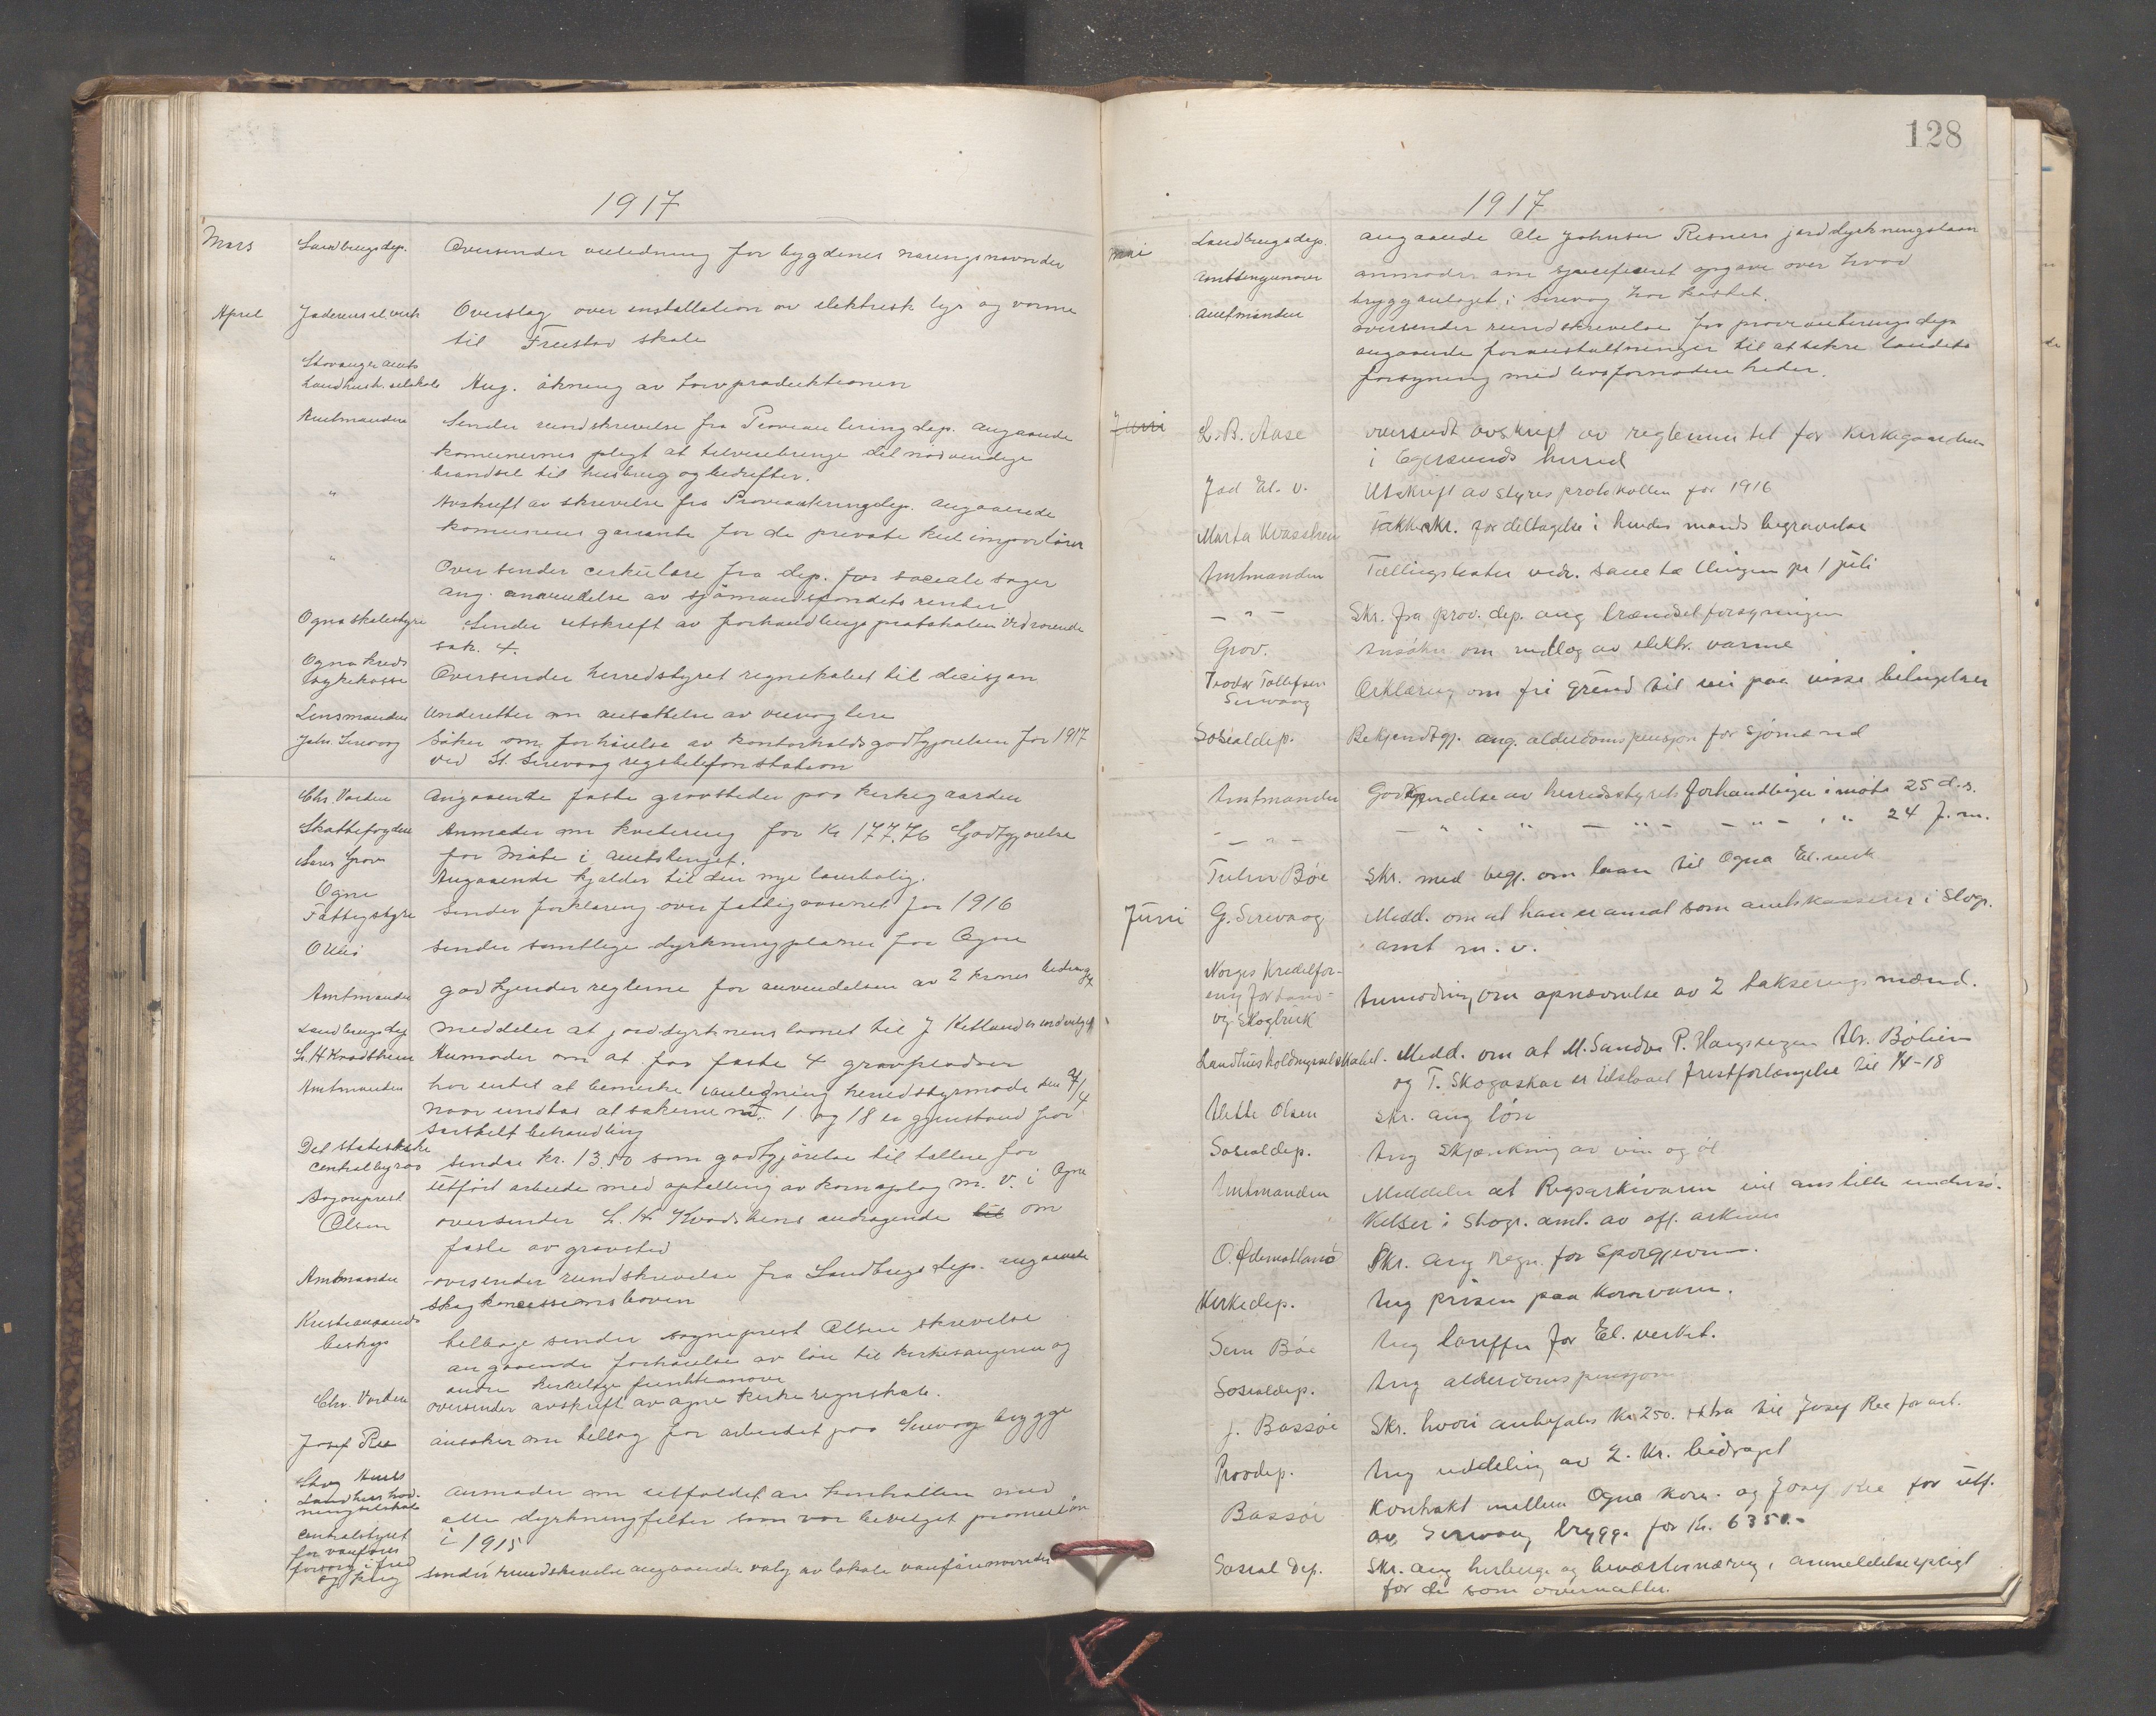 1917
Mars Landbrugsdep. Oversender veiledning for bygdenes næringsnævnder
April Jæderens el. verk Overslag over installation av elektrisk lys og varme
til skole
Stavanger amts
Landhush. selskab Ang. økning av produktionen
Amtmanden Sender rundskrivelse fra Provianteringdep. angaaende
komunernes pligt at tilveiebringe det nødvendige
brændsel til husbrug og bedrifter.
" Avskrift av skrivelse fra Provianteringdep. angaaende
komunens garanti for de private kul importører
" Over sender cirkulære fra dep. for sociale sager
ang. anvendelse av sjømandsfondets renter
Ogna skolestyre Sender utskrift av forhandlings protokolen vedrørende
sak. 4.
Ogna kreds
sykekasse Oversender herredstyret regnskabet til decisjon
Lensmanden Underetter om ansættelse av
Johs. Sirevaag Søker om forhøielse av kontorholds godtgjørelsen for 1917
ved St. Sirevaag rigstelefonstation
Chr. Varden Angaaende faste gravsteder paa kirkegaarden
Skattefogden Anmoder om kvitering for Kr 177,76 Godtgjørelse
for møte i amtstinget.
Lars Grov Angaaende kjælder til den nye bolig.
Ogne
Fattigstyre Sender forklaring over fattigvæsenet for 1916
sender samtlige dyrkningsplaner for Ogne
Amtmanden godkjender reglerne for anvendelsen av 2 kroners bidraget
Landbrugsdep meddeler at jorddyrknings laanet til J Ketland er indvilget
L. H Kvadsheim Anmoder om at faa fæste 4 gravpladser
Amtmanden har intet at bemerke i anledning herredstyrmøde den 2/4
naar undtas at sakerne nr. 1 og 18 er gjenstand for
særskilt behandling
Det statistiske
centralbyraa sender kr. 13,50 som godtgjørelse til tællere for
utført arbeide med optælling av kornoplag m. v. i Ogne
Sogneprest
Olsen oversender L. H Kvadsheims andragende til om
fæste av gravsted
Amtmanden oversender rundskrivelse fra Landbrugs dep. angaaende
skogkoncessionsloven
Kristiansands
biskop tilbage sender sogneprest Olsens skrivelse
angaaende forhøielse av løn til kirkesangeren og
andre kirkelige funktionærer
Chr. Varden oversender avskrift av ogne kirke regnskab.
Josef Ree ansøker om tillæg for arbeidet paa Sirevaag brygge
Stvg Amts
Landhushold-
ningsselskab anmoder om utfoldet av kontrollen med
alle dyrkningsfelter som var bevilget premielaan
i 1915
Centralstyret
for vanføres
forsorg i fred
og krig sender rundskrivelse angaaende valg av lokale vanførenævnder
128
1917
Mai Landbrugsdep. angaaende Ole Johnsen Risnes jorddyrkningslaan
Amtsingeniøren anmoder om specificeret opgave over hvad
brygganlæget i Sirevaag har kostet.
Amtmanden oversender rundskrivelse fra provianteringsdep
angaaende foranstaltninger til at sikre landets
forsyning med livsfornødenheder.
Juni L. B. Aase oversendt avskrift av reglementet for kirkegaarden
i Egersunds herred
Jæd El. v. Utskrift av styres protokollen for 1916
Marta Kvassheim Takkeskr. for deltagelse i hendes mands begravelse
Amtmanden Tællingslister vedr. tællingen pr 1 juli
- " - Skr. fra prov. dep. ang brændselforsyningen
Grov. Ansøker om indlæg av elektr. varme
Teodor Tollefsen
Sirevaag Erklæring om fri grund til vei paa visse betingelser
Sosialdep. Bekjendtgj. ang. alderdomspensjon for sjømænd
Amtmanden Godkjendelse av herredsstyrets forhandlinger i møte 25 d.s.
- " - - " - " - " - " - " 24 f. m.
Bøe Skr. med begj. om laan til Ogna El. verk
Juni G. Sirevaag Medd. om at han er ansat som amtskasserer i Stvgr.
amt m. v.
Norges Kreditfor-
ening for Land-
og Skogbruk Anmodning om opnævnelse av 2 takseringsmænd.
Landhusholdningsselskabet. Medd. om at M. Sandve P. Haugstegen Abr. Bølien
og T. Skogaskar er tilstaaet fristforlængelse til 1/4-18
Alette Olsen skr. ang løn
Sosialdep. Ang Skjænkning av vin og øl
Amtmanden Meddeler at Rigsarkivaren vil anstille undersø-
kelser i Stvgr. amt. av off. arkiver
O. Skr. ang regn. for
Kirkedep. Ang prisen paa kornvarer.
Sem Bøe Ang tariffen for El. verket.
Sosialdep. Ang alderdomspensjon
J. Bassøe Skr. hvori anbefales Kr 250. extra til Josef Ree for arb.
Provdep. Ang uddeling av 2. Kr. bidraget
Bassøe Kontrakt mellem Ogna kom. og Josef Ree for utf.
av Sirevaag brygge for Kr. 6350.-
Sosial Dep. Skr. ang herberge og beværternæring, anmeldelsespligt
for de som overnatter.